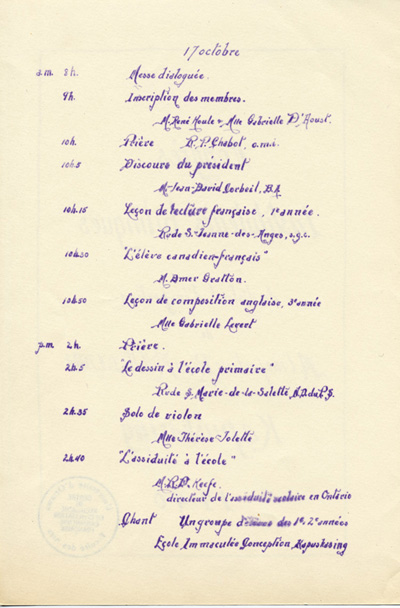 17 octobre
a.m. 8h. Messe dialoguée.
9h. Inscription des membres.
M. René Houle & Mlle Gabrielle D'Aoust.
10h. Prière R.P. Chabot, o.m.i.
10h5 Discours du président
M. Jean-David Corbeil, B.A
10h.15 Leçon de lecture française, 1e année.
Rvde S. Jeanne-des-Anges, s.g.c.
10h.30 "L'élève canadien-français"
M. Omer Gratton.
10h.50 Leçon de composition anglaise, 3e année
Mlle Gabrielle Levert
p.m. 2h. Prière.
2h.5 "Le dessin à l'école primaire"
Rvde S. Marie-de-la-Salette,
2h.35 Solo de violon
Mlle Thérèse
2h40 "L'assiduité à l'école"
M. Keefe.
directeur de l'assiduité scolaire en Ontario
Chant Un groupe d'élèves des 1e, 2e années
École Immaculée Conception, Kapuskasing